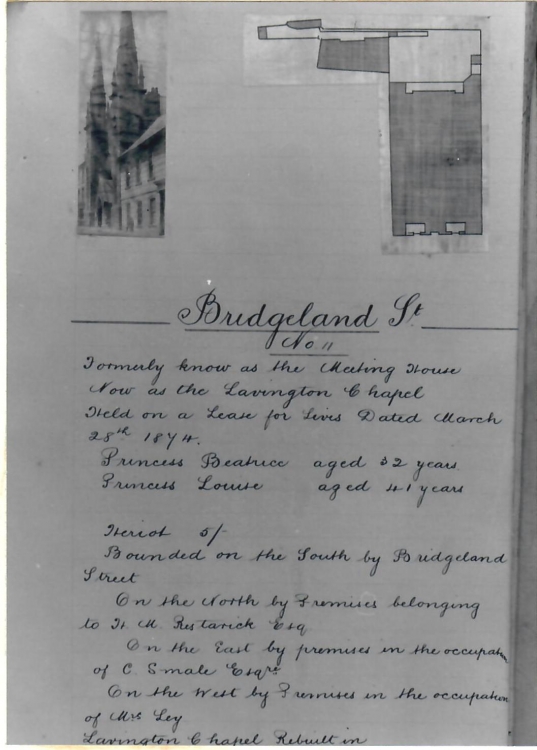 Bridgeland St
No 11
Formerly know as the Meeting House
Now as the Lavington Chapel
Held on a Lease for Lives Dated March
28th 1874.
Princess Beatrice aged 32 years
Princess Louise aged 41 years
Heriot 5/-
Bounded on the South by Bridgeland
Street
On the North by Premises belonging
to H. M. Restarick Esq
On the East by premises in the occupation
of C Smale Esqre
On the West by Premises in the occupation
of Mrs Ley
Lavington Chapel Rebuilt in